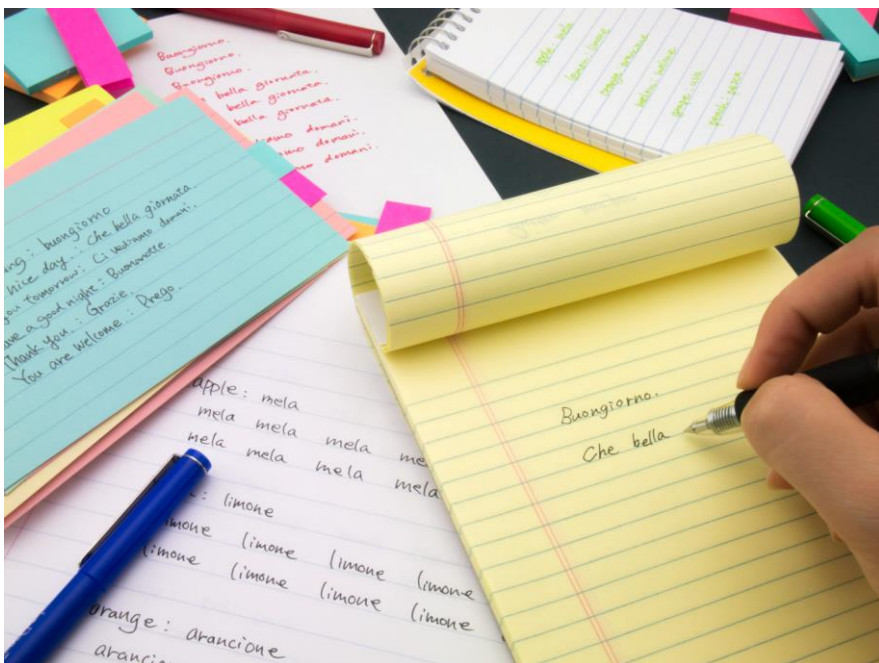 Buongiorno.
Buongiorno.
Buongiorno.
bella giornata.
bella giornata.
bella giornata.
domani.
domani.
domani.
apple : mela
lemon : limone
orange : arancione
grape : uva
: buongiorno
nice day : Che bella giornata.
you tomorrow : Ci vediamo domani.
have a good night : Buonanotte.
Thank you : Grazie.
You are welcome : Prego.
apple : mela
mela mela mela
mela mela mela mela
: limone
limone limone limone limone
limone limone limone limone
orange : arancione
Buongiorno.
Che bella